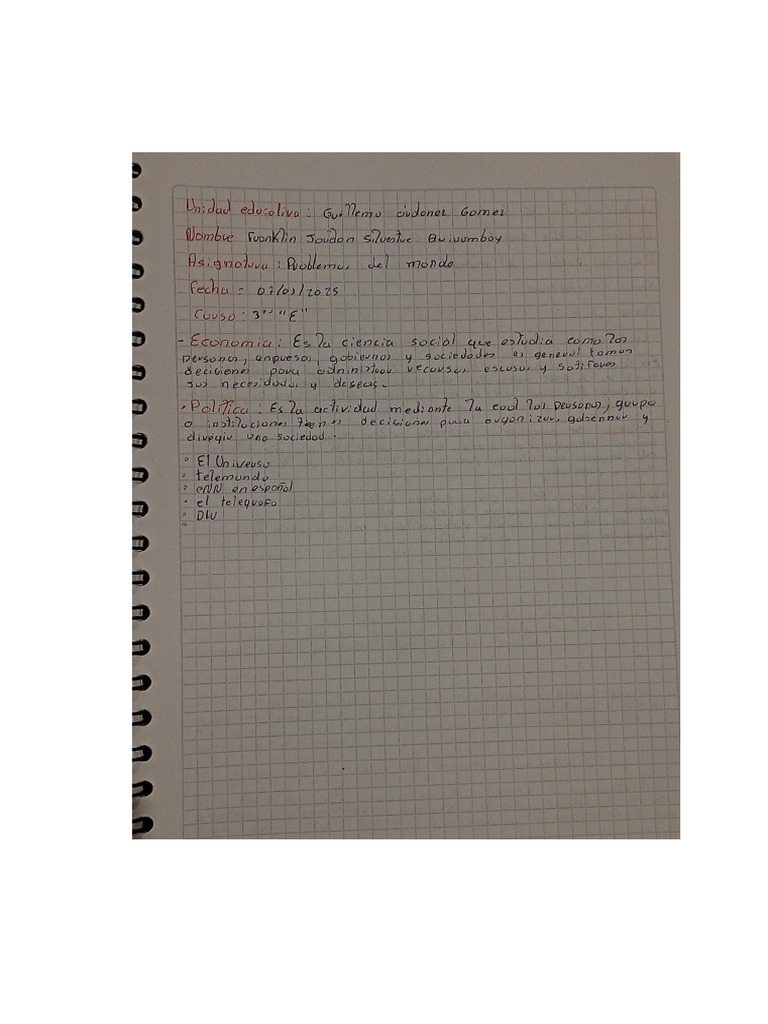 Unidad educativa: Guillemo órdonez Gomez
Nombre Franklin Jordan Silvestre Quirumbay
Asignatura: Problemas del mundo
Fecha = 07/01/2025
Curso: 3ro "E"
- Economia: Es la ciencia social que estudia como las
personas, enpresas, gobiernos y sociedades en general toman
decisiones para administrar recursos escasos y satisfacer
sus necesidades y deseas.
• Política: Es la actividad mediante la cual las personas, grupo
o instituciones tienes decisiones para organizar, gobernar y
dirigir una sociedad.
° El Universo
° telemundo
° CNN en español
- el telegrafo
° DW
°